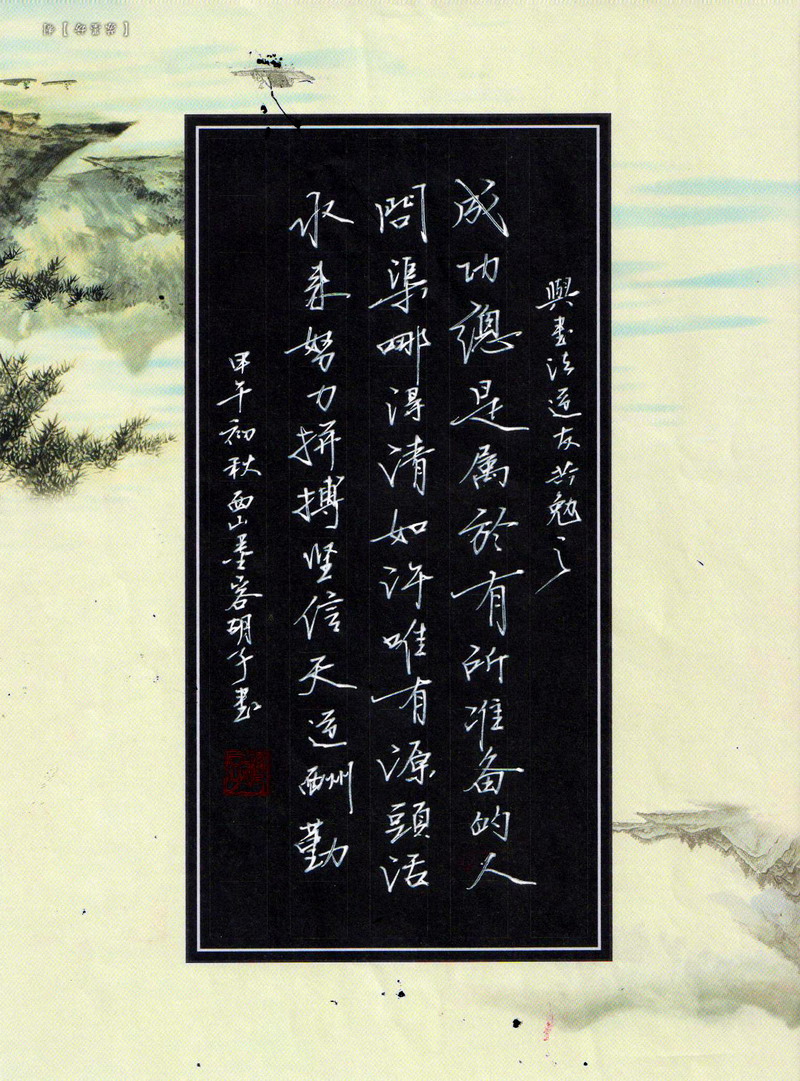 與書法道友共勉之
成功總是属於有所准备的人
問渠哪得清如许唯有源頭活
水来努力拼搏坚信天道酬勤
甲午初秋西山墨客胡子書